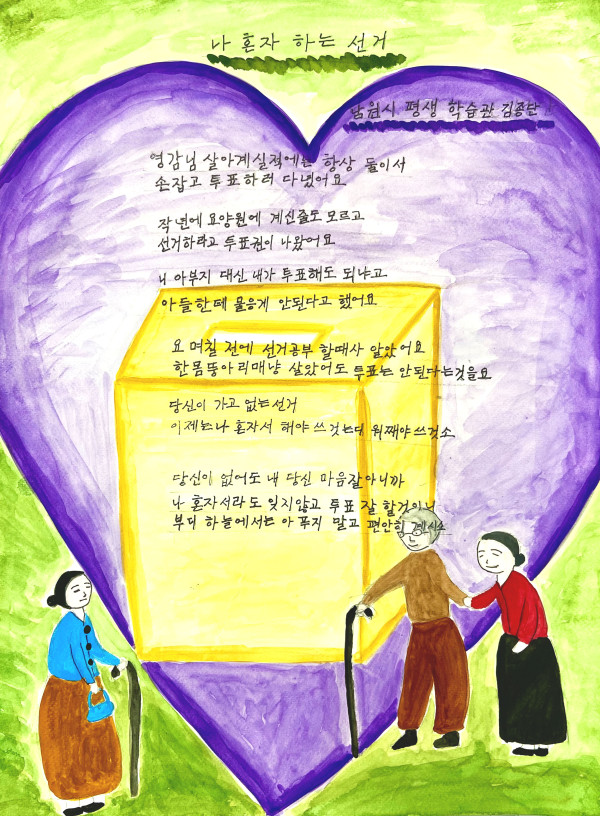 나 혼자 하는 선거
남원시 평생 학습관 김종단
영감님 살아계실적에는 항상 둘이서
손잡고 투표하러 다녔어요
작년에 요양원에 계신줄도 모르고
선거하라고 투표권이 나왔어요
니 아부지 대신 내가 투표해도 되냐고
아들한테 물응게 안된다고 했어요
요 며칠 전에 선거공부 할때사 알았어요
한몸뚱아리매냥 살았어도 투표는 안된다는것을요
당신이 가고 없는선거
이제는나 혼자서 해야쓰것는디 워째야쓰것소
당신이 없어도 내 당신 마음잘아니까
나 혼자서라도 잊지않고 투표 잘 할것이니
부디 하늘에서는 아푸지 말고 편안히 계시소